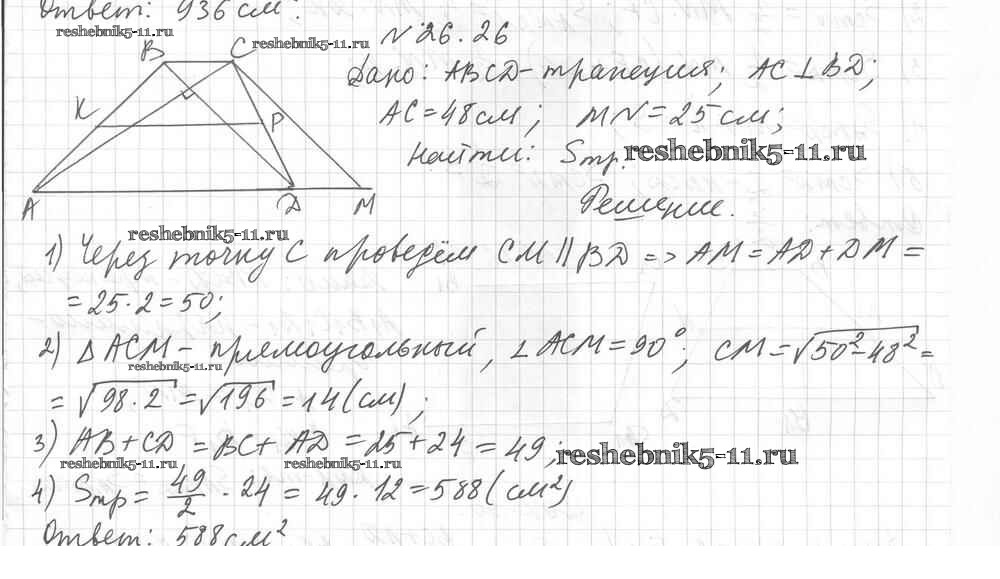 Ответ: 936 см².
reshebnik5-11.ru
reshebnik5-11.ru
№ 26.26
B C
K P
A D M
Дано: ABCD - трапеция; AC ⊥ BD;
AC = 48 см; MN = 25 см;
Найти: Sтр. reshebnik5-11.ru
Решение.
reshebnik5-11.ru
1) Через точку C проведём CM || BD => AM = AD + DM =
= 25 · 2 = 50;
2) Δ ACM - прямоугольный, ∠ ACM = 90°; CM = √50² - 48² =
reshebnik5-11.ru
= √98 · 2 = √196 = 14 (см);
3) AB + CD = BC + AD = 25 + 24 = 49; reshebnik5-11.ru
reshebnik5-11.ru reshebnik5-11.ru
4) Sтр = 49/2 · 24 = 49 · 12 = 588 (см²)
Ответ: 588 см²